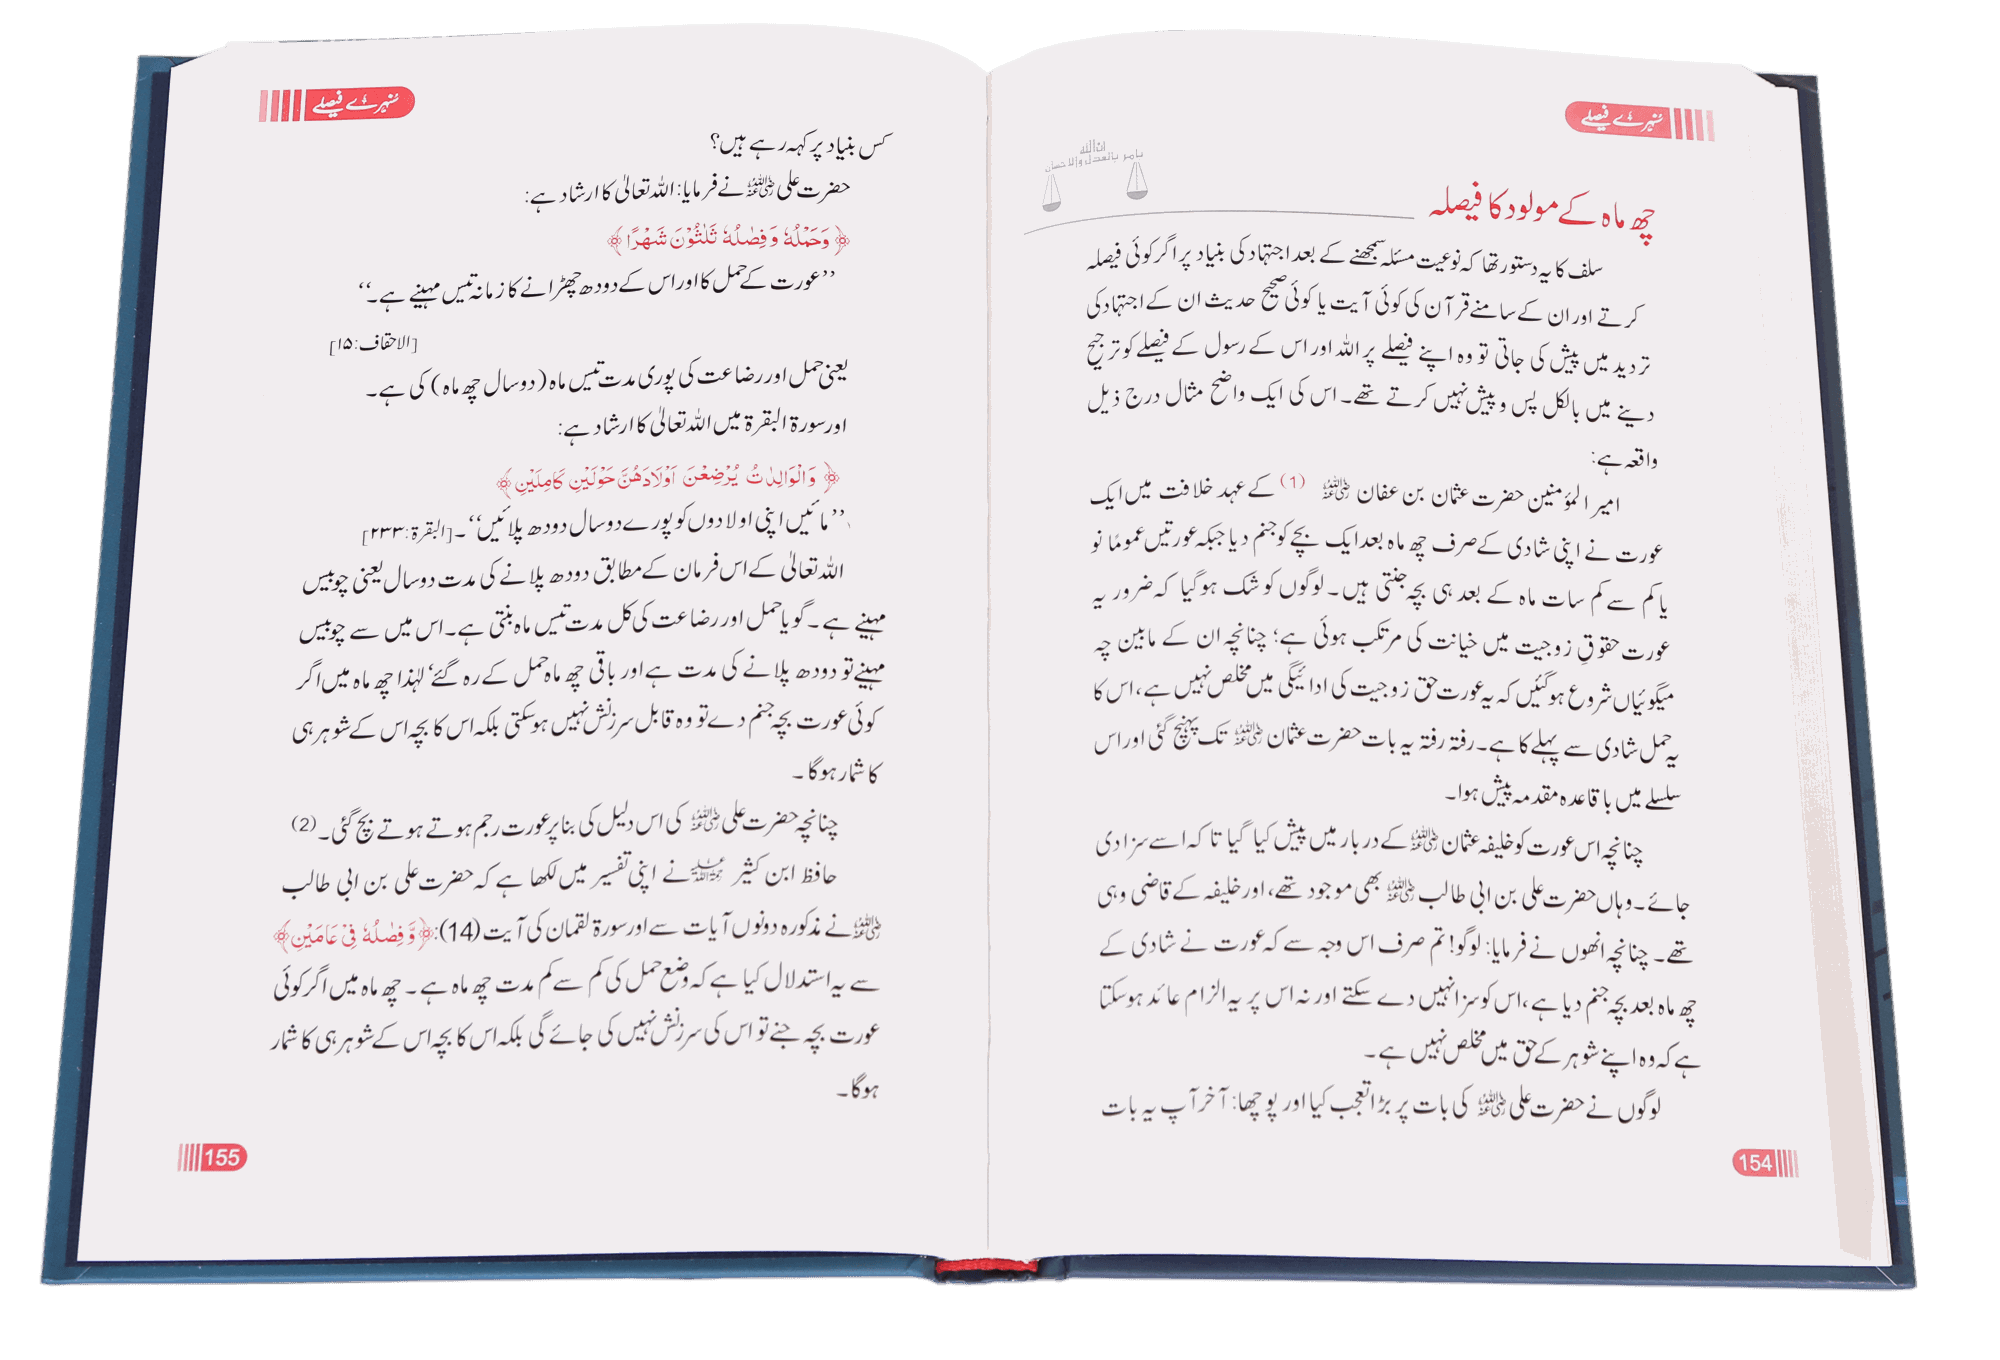 سنہرے فیصلے
ان اللہ
یامر بالعدل والاحسان
چھ ماہ کے مولود کا فیصلہ
سلف کا یہ دستور تھا کہ نوعیت مسئلہ سمجھنے کے بعد اجتہاد کی بنیاد پر اگر کوئی فیصلہ
کرتے اور ان کے سامنے قرآن کی کوئی آیت یا کوئی صحیح حدیث ان کے اجتہاد کی
تردید میں پیش کی جاتی تو وہ اپنے فیصلے پر اللہ اور اس کے رسول کے فیصلے کو ترجیح
دینے میں بالکل پس و پیش نہیں کرتے تھے۔ اس کی ایک واضح مثال درج ذیل
واقعہ ہے:
امیر المؤمنین حضرت عثمان بن عفان رضی اللہ عنہ (1) کے عہد خلافت میں ایک
عورت نے اپنی شادی کے صرف چھ ماہ بعد ایک بچے کو جنم دیا جبکہ عورتیں عموماً نو
یا کم سے کم سات ماہ کے بعد ہی بچہ جنتی ہیں۔ لوگوں کو شک ہو گیا کہ ضرور یہ
عورت حقوقِ زوجیت میں خیانت کی مرتکب ہوئی ہے؛ چنانچہ ان کے مابین چہ
میگوئیاں شروع ہو گئیں کہ یہ عورت حق زوجیت کی ادائیگی میں مخلص نہیں ہے، اس کا
یہ حمل شادی سے پہلے کا ہے۔ رفتہ رفتہ یہ بات حضرت عثمان رضی اللہ عنہ تک پہنچ گئی اور اس
سلسلے میں باقاعدہ مقدمہ پیش ہوا۔
چنانچہ اس عورت کو خلیفہ عثمان رضی اللہ عنہ کے دربار میں پیش کیا گیا تا کہ اسے سزا دی
جائے۔ وہاں حضرت علی بن ابی طالب رضی اللہ عنہ بھی موجود تھے، اور خلیفہ کے قاضی وہی
تھے۔ چنانچہ انھوں نے فرمایا: لوگو! تم صرف اس وجہ سے کہ عورت نے شادی کے
چھ ماہ بعد بچہ جنم دیا ہے، اس کو سزا نہیں دے سکتے اور نہ اس پر یہ الزام عائد ہو سکتا
ہے کہ وہ اپنے شوہر کے حق میں مخلص نہیں ہے۔
لوگوں نے حضرت علی رضی اللہ عنہ کی بات پر بڑا تعجب کیا اور پوچھا: آخر آپ یہ بات
154
سنہرے فیصلے
کس بنیاد پر کہہ رہے ہیں؟
حضرت علی رضی اللہ عنہ نے فرمایا: اللہ تعالیٰ کا ارشاد ہے:
﴿ وَحَمْلُهٗ وَفِصٰلُهٗ ثَلٰثُوْنَ شَهْرًا ﴾
’’عورت کے حمل کا اور اس کے دودھ چھڑانے کا زمانہ تیس مہینے ہے۔‘‘
[الاحقاف: ۱۵]
یعنی حمل اور رضاعت کی پوری مدت تیس ماہ (دو سال چھ ماہ) کی ہے۔
اور سورۃ البقرۃ میں اللہ تعالیٰ کا ارشاد ہے:
﴿ وَالْوَالِدٰتُ يُرْضِعْنَ اَوْلَادَهُنَّ حَوْلَيْنِ كَامِلَيْنِ ﴾
’’مائیں اپنی اولادوں کو پورے دو سال دودھ پلائیں‘‘۔ [البقرۃ: ۲۳۳]
اللہ تعالیٰ کے اس فرمان کے مطابق دودھ پلانے کی مدت دو سال یعنی چوبیس
مہینے ہے۔ گویا حمل اور رضاعت کی کل مدت تیس ماہ بنتی ہے۔ اس میں سے چوبیس
مہینے تو دودھ پلانے کی مدت ہے اور باقی چھ ماہ حمل کے رہ گئے‘ لہٰذا چھ ماہ میں اگر
کوئی عورت بچہ جنم دے تو وہ قابل سرزنش نہیں ہو سکتی بلکہ اس کا بچہ اس کے شوہر ہی
کا شمار ہوگا۔
چنانچہ حضرت علی رضی اللہ عنہ کی اس دلیل کی بنا پر عورت رجم ہوتے ہوتے بچ گئی۔ (2)
حافظ ابن کثیر رحمۃ اللہ علیہ نے اپنی تفسیر میں لکھا ہے کہ حضرت علی بن ابی طالب
رضی اللہ عنہ نے مذکورہ دونوں آیات سے اور سورۃ لقمان کی آیت (14): ﴿ وَّفِصٰلُهٗ فِیْ عَامَيْنِ ﴾
سے یہ استدلال کیا ہے کہ وضع حمل کی کم سے کم مدت چھ ماہ ہے۔ چھ ماہ میں اگر کوئی
عورت بچہ جنے تو اس کی سرزنش نہیں کی جائے گی بلکہ اس کا بچہ اس کے شوہر ہی کا شمار
ہوگا۔
155